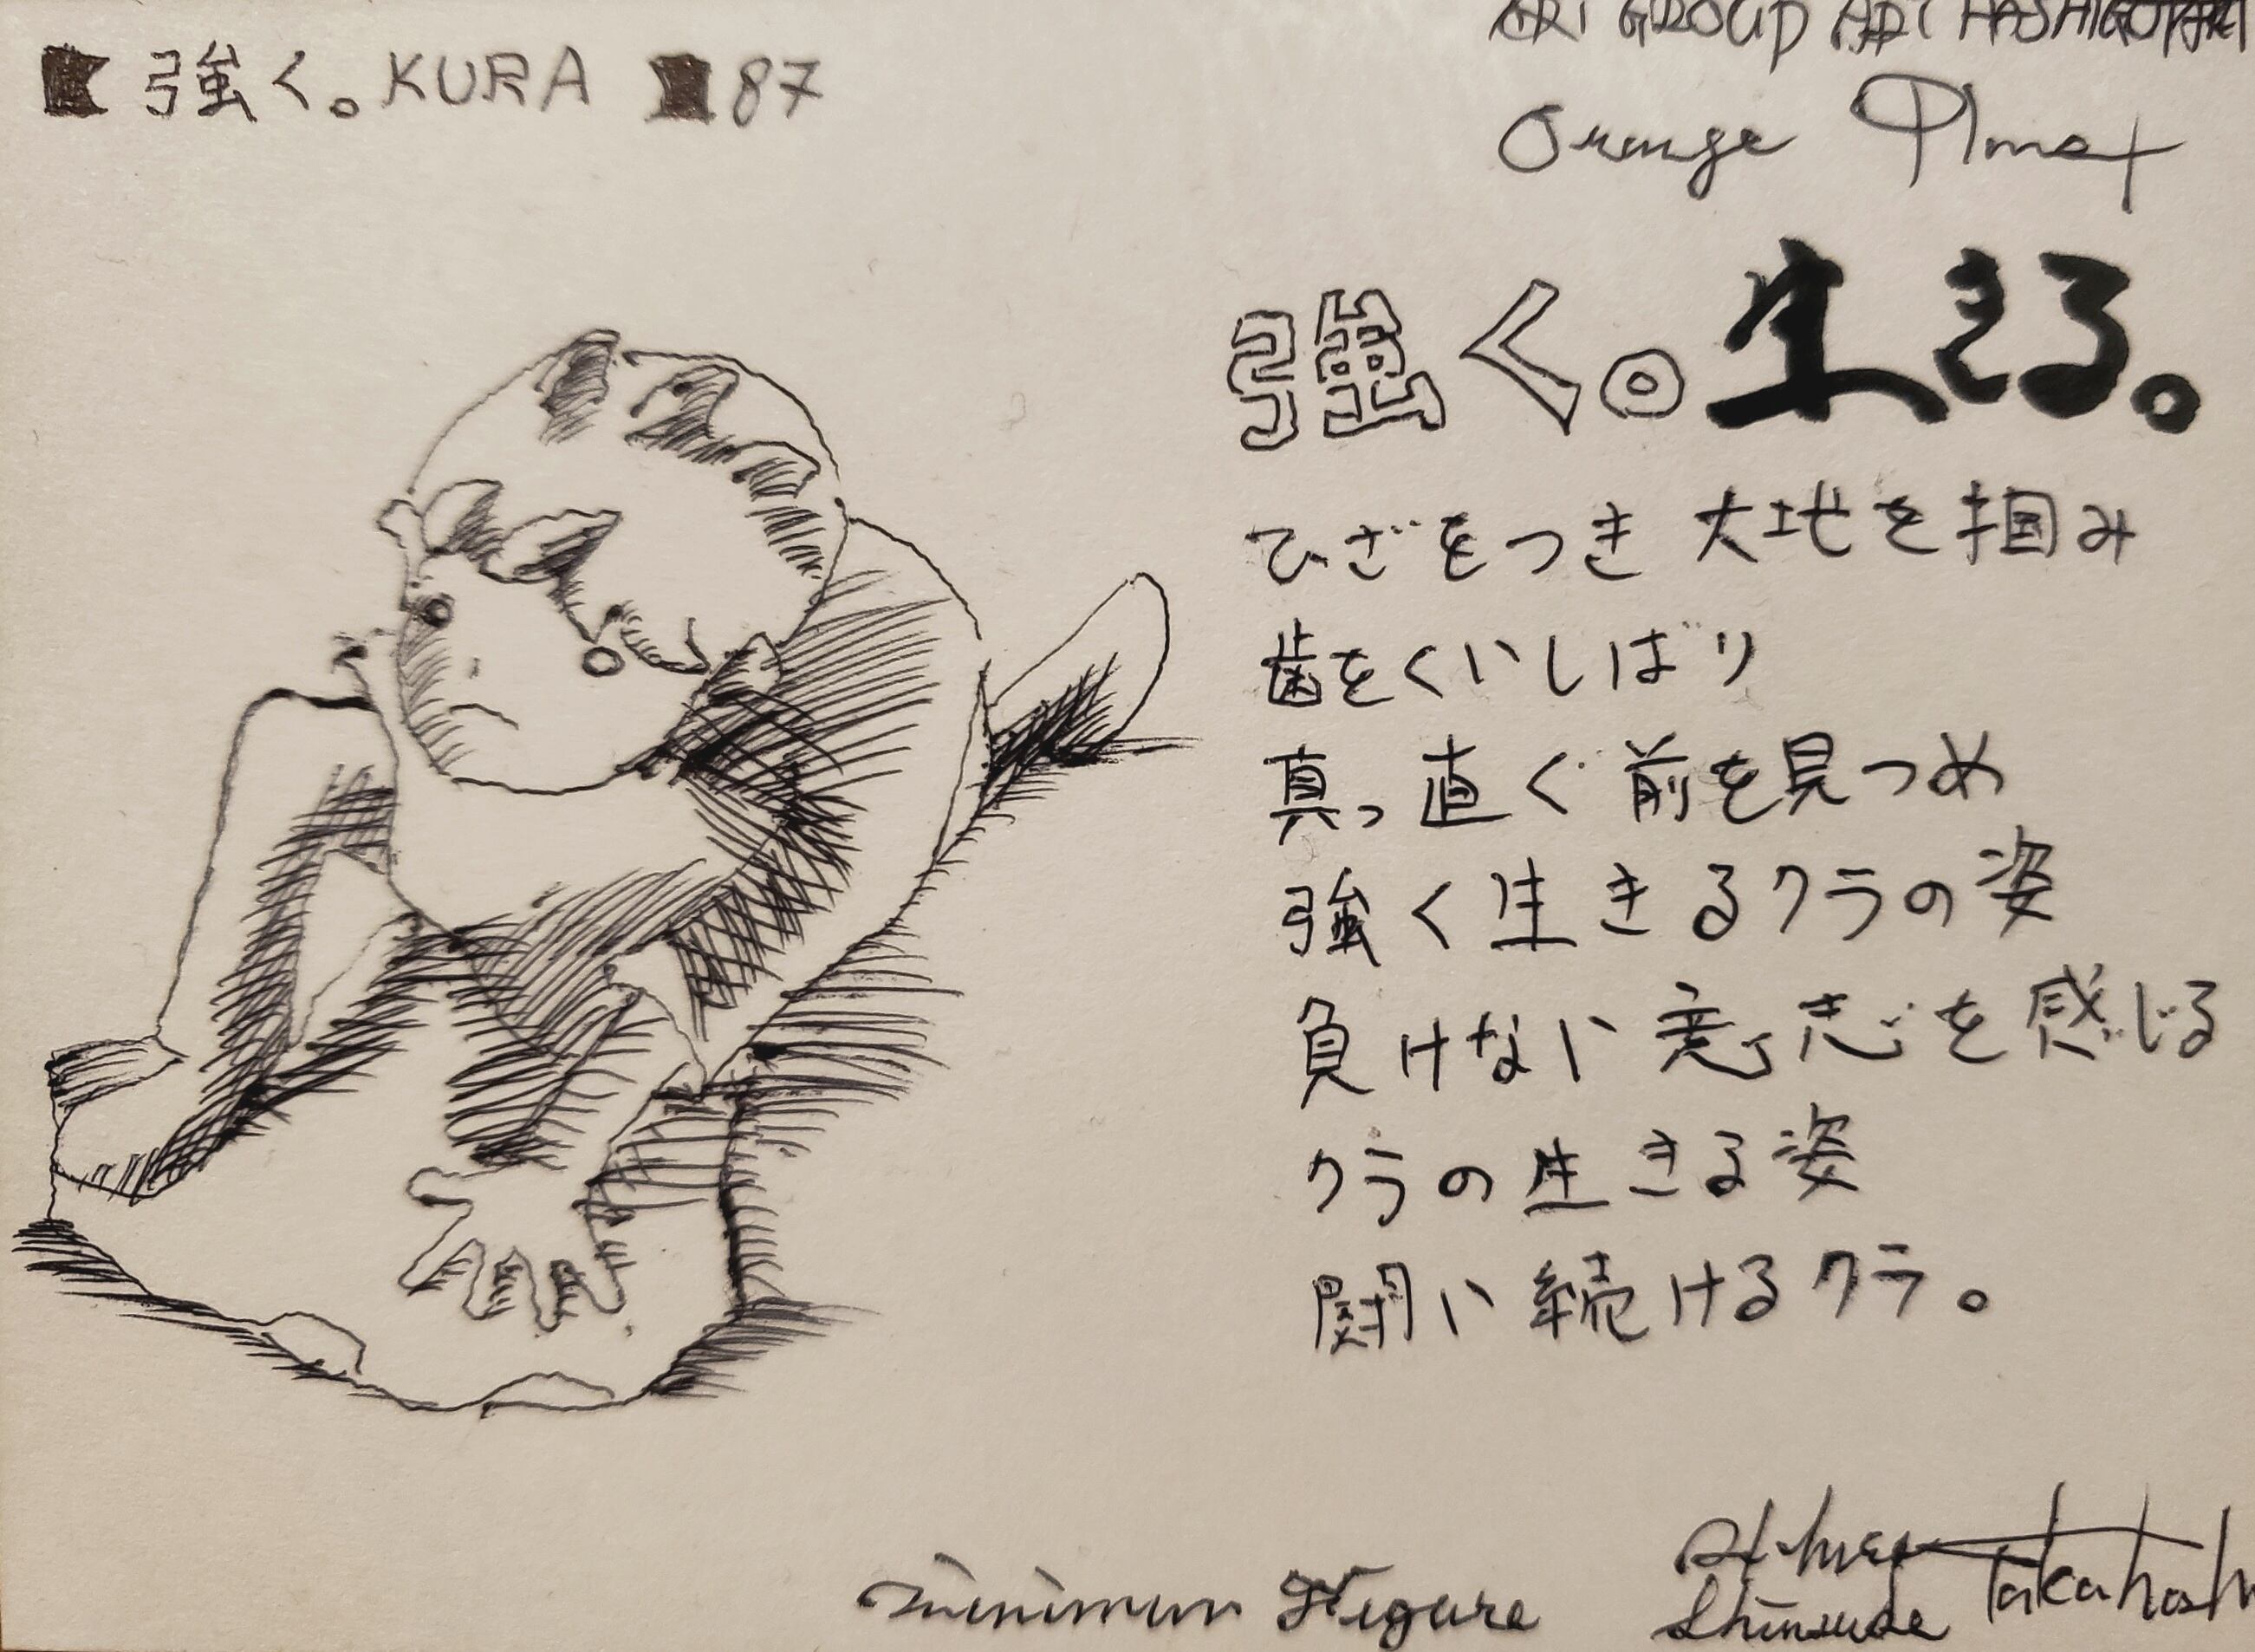 強く。KURA 87
ART GROUP ART HASHIGOTAKA
Orange Planet
強く。生きる。
ひざをつき 大地を掴み
歯をくいしばり
真っ直ぐ前を見つめ
強く生きるクラの姿
負けない意志を感じる
クラの生きる姿
闘い続けるクラ。
minimum Figure
Takahashi